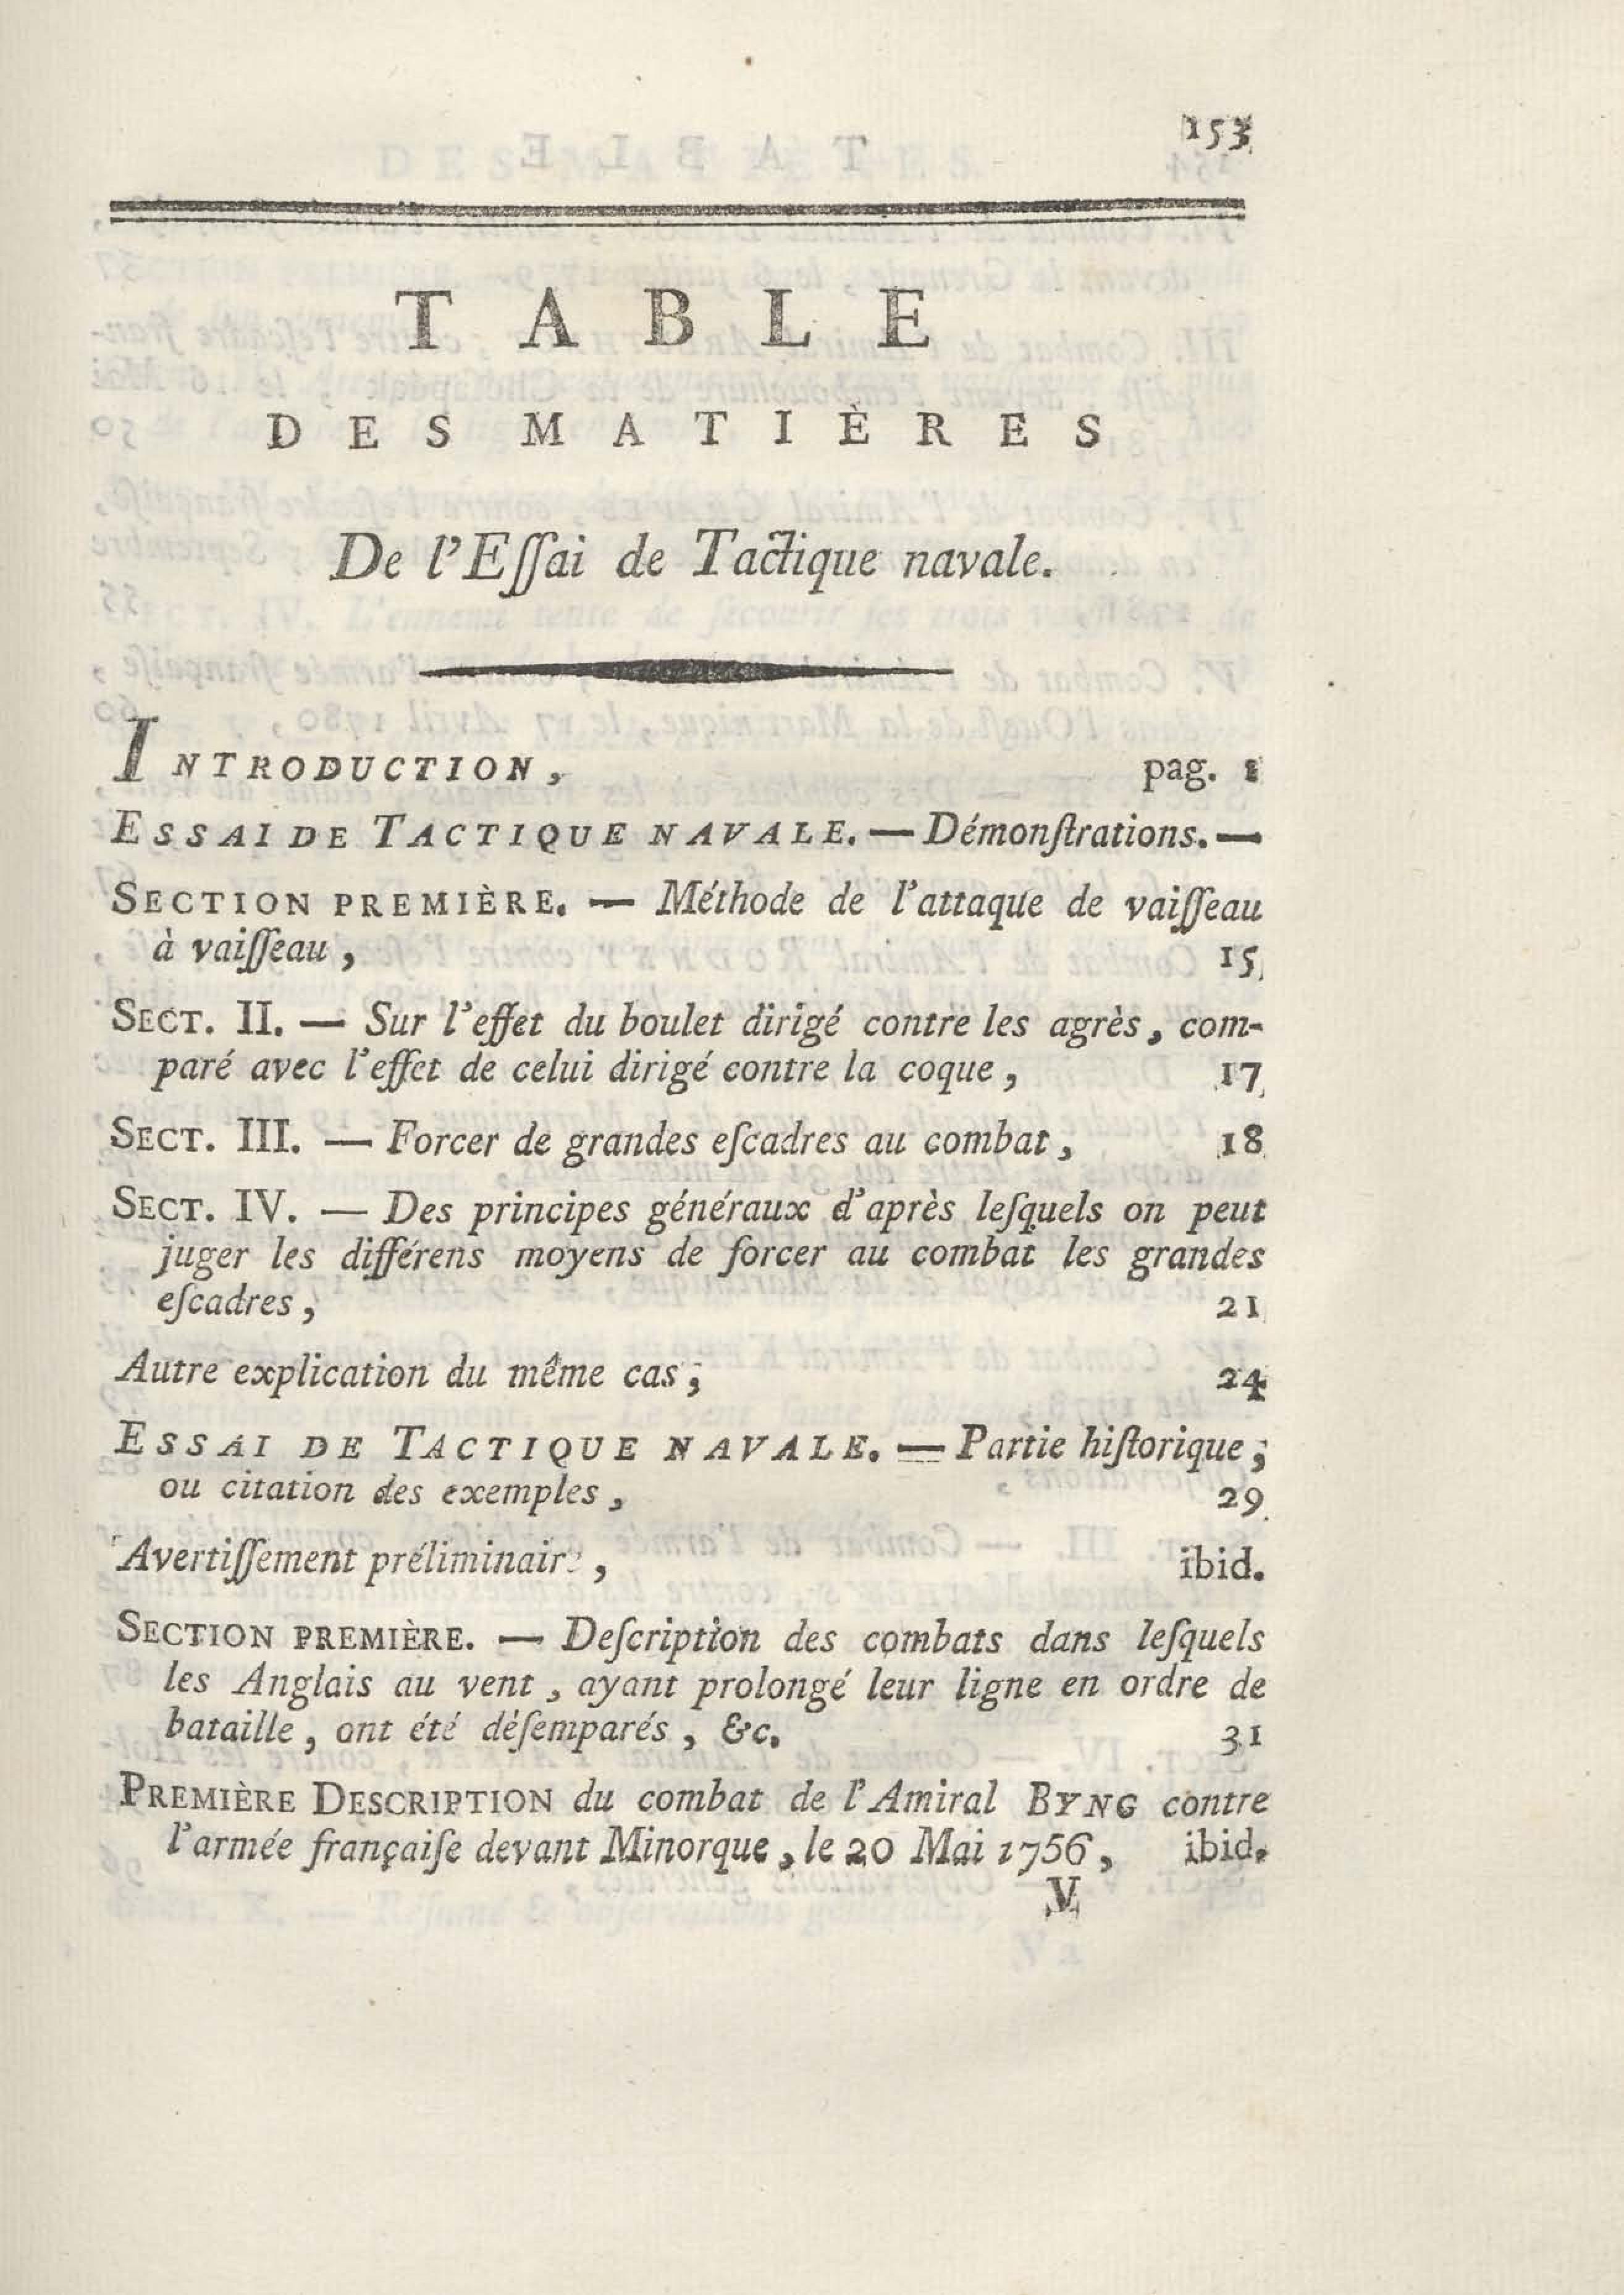 153
TABLE
DES MATIÈRES
De l'Eſſai de Tactique navale.
INTRODUCTION, pag. 1
ESSAI DE TACTIQUE NAVALE. — Démonſtrations. —
SECTION PREMIÈRE. — Méthode de l'attaque de vaiſſeau
à vaiſſeau, 15
SECT. II. — Sur l'effet du boulet dirigé contre les agrès, com-
paré avec l'effet de celui dirigé contre la coque, 17
SECT. III. — Forcer de grandes eſcadres au combat, 18
SECT. IV. — Des principes généraux d'après leſquels on peut
juger les différens moyens de forcer au combat les grandes
eſcadres, 21
Autre explication du même cas, 24
ESSAI DE TACTIQUE NAVALE. — Partie hiſtorique,
ou citation des exemples, 29
Avertiſſement préliminaire, ibid.
SECTION PREMIÈRE. — Deſcription des combats dans leſquels
les Anglais au vent, ayant prolongé leur ligne en ordre de
bataille, ont été déſemparés, &c. 31
PREMIÈRE DESCRIPTION du combat de l'Amiral BYNG contre
l'armée françaiſe devant Minorque, le 20 Mai 1756, ibid.
V